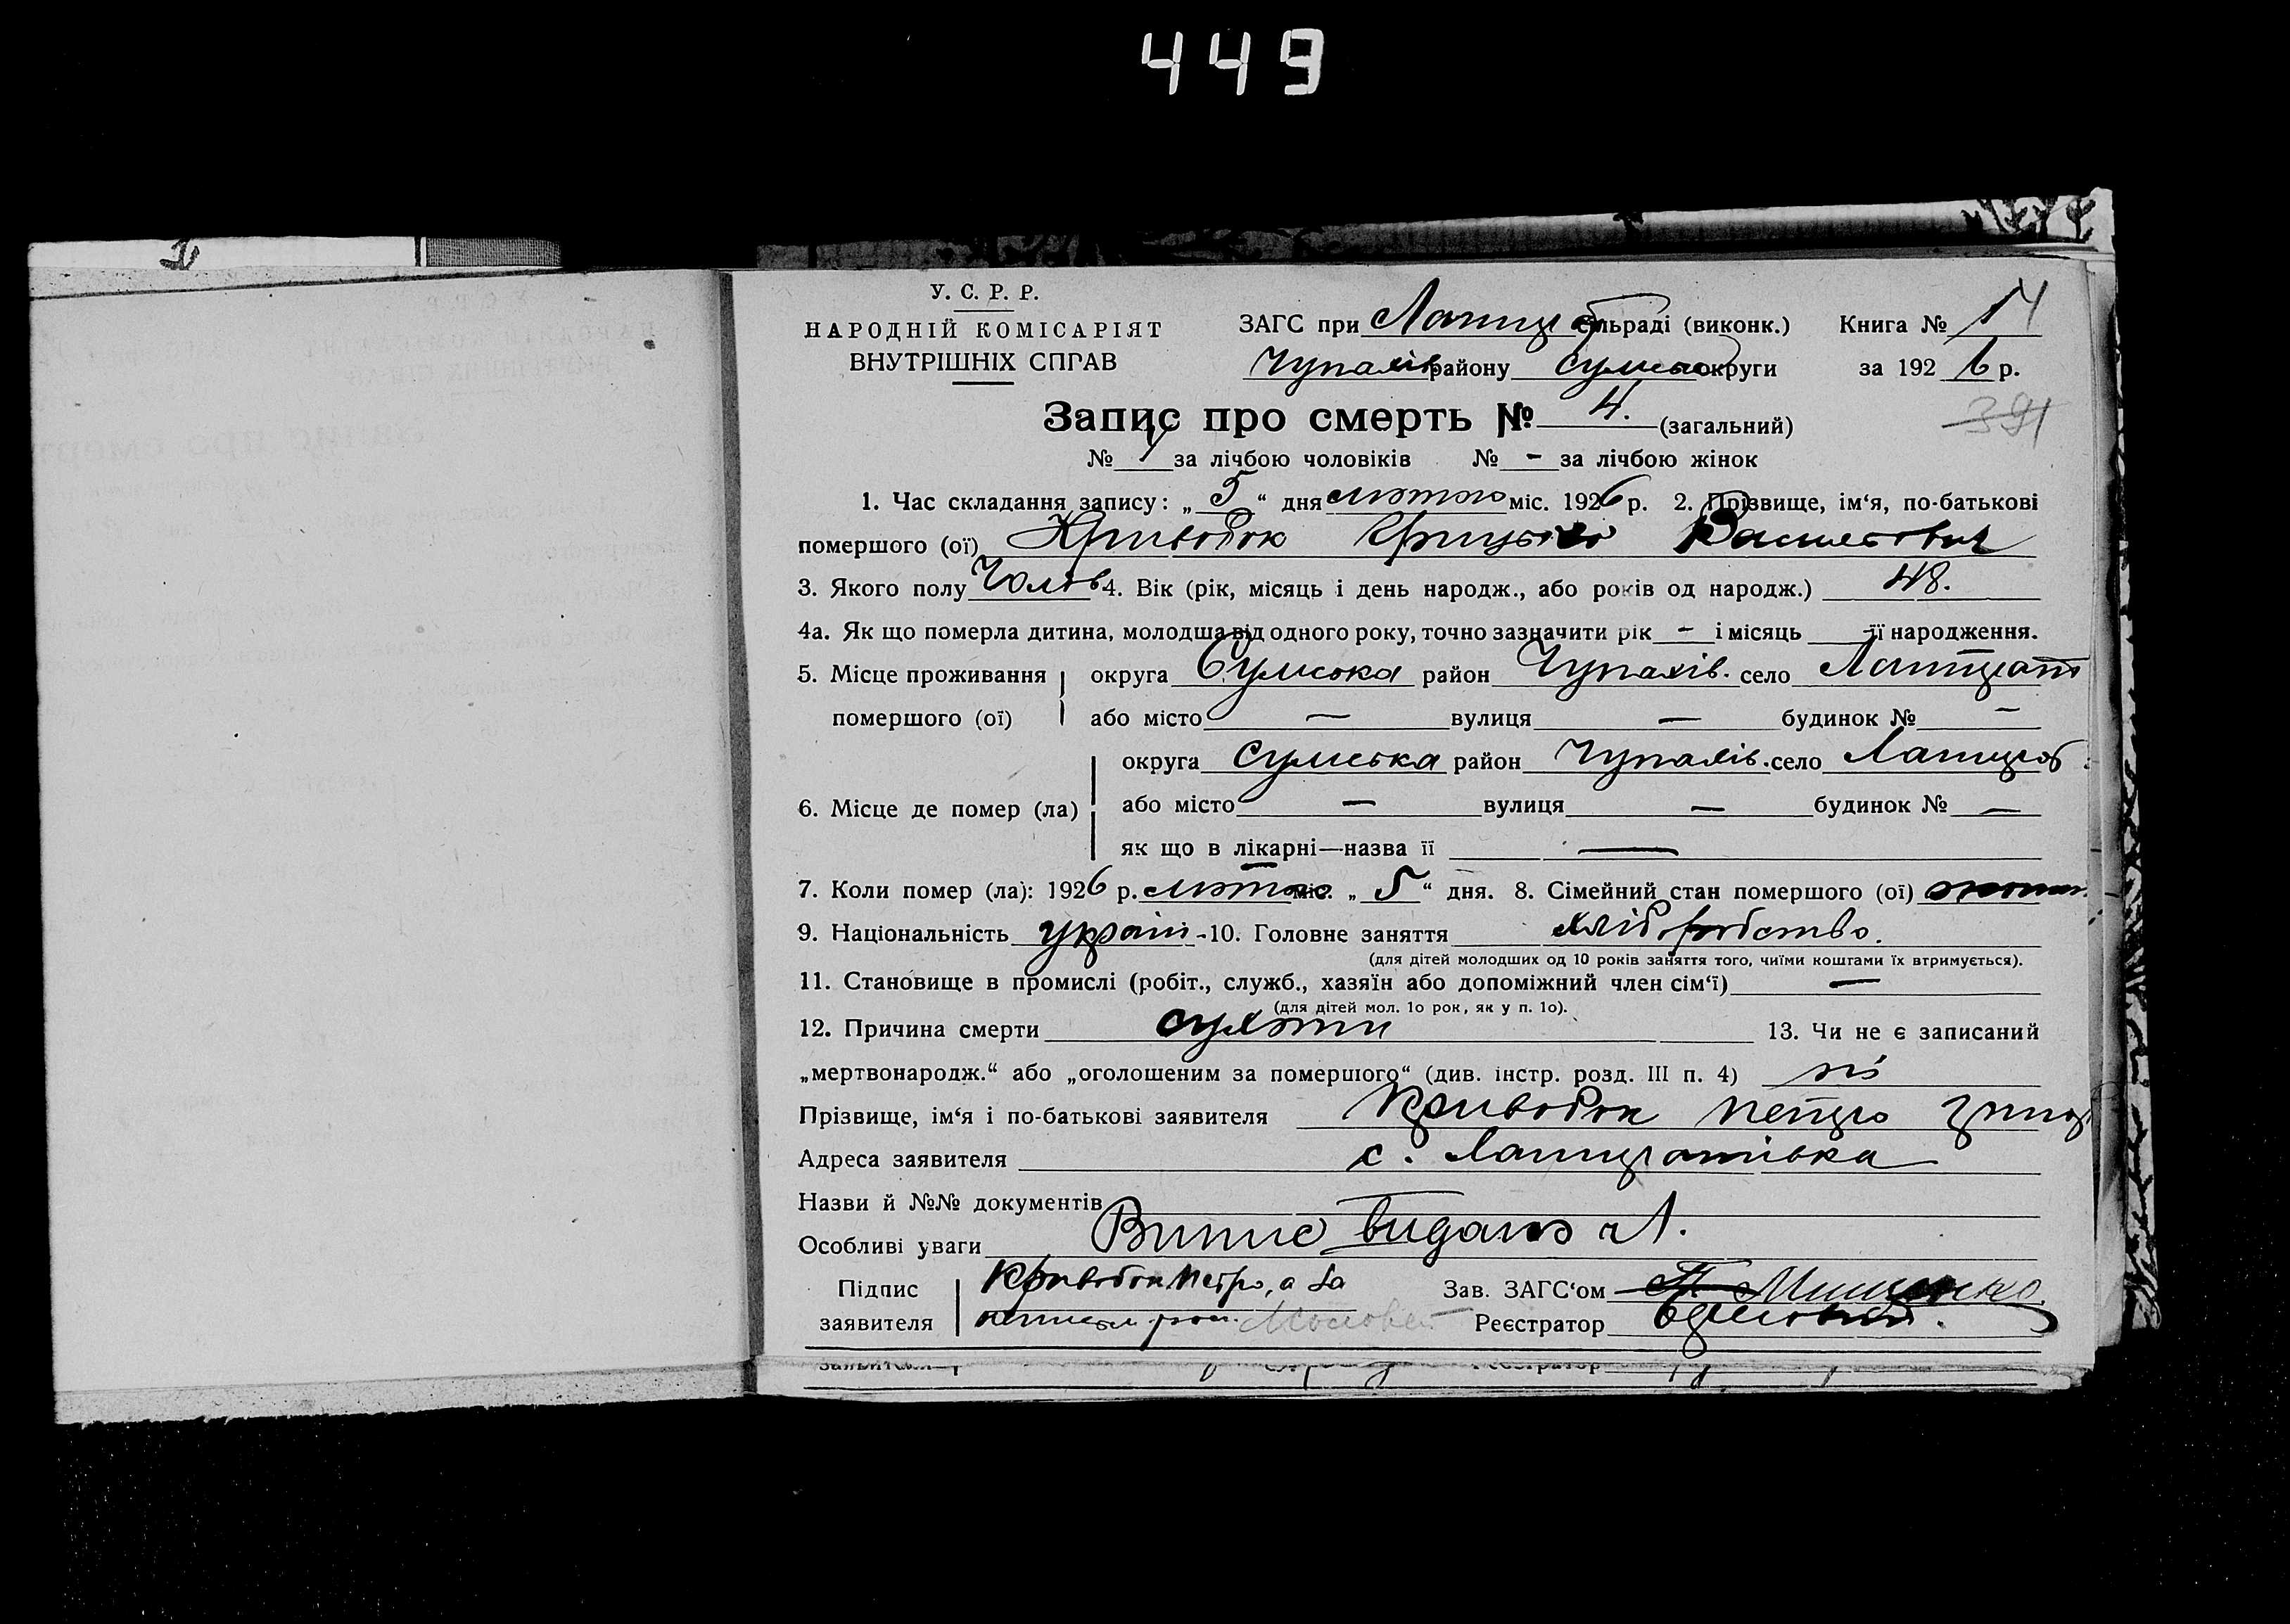 449
У. С. Р. Р.
НАРОДНІЙ КОМІСАРІЯТ
ВНУТРІШНІХ СПРАВ
ЗАГС при сільраді (виконк.) Книга № 14
Чупахів району Сумськ округи за 1926 р.
391
Запис про смерть № 4. (загальний)
№ за лічбою чоловіків № - за лічбою жінок
1. Час складання запису: „5“ дня лютого міс. 1926 р. 2. Прізвище, ім‘я, по-батькові
помершого (ої) Кривобок Грицько Васильович
3. Якого полу Чолов 4. Вік (рік, місяць і день народж., або років од народж.) 48.
4а. Як що померла дитина, молодша від одного року, точно зазначити рік - і місяць - її народження.
5. Місце проживання помершого (ої) округа Сумська район Чупахів. село
або місто — вулиця — будинок № —
6. Місце де помер (ла) округа Сумська район Чупахів. село
або місто — вулиця — будинок № —
як що в лікарні—назва її —
7. Коли помер (ла): 1926 р. лютого міс. „5“ дня. 8. Сімейний стан помершого (ої)
9. Національність україн - 10. Головне заняття хліборобство.
(для дітей молодших од 10 років заняття того, чиїми коштами їх втримується).
11. Становище в промислі (робіт., служб., хазяїн або допоміжний член сім‘ї) —
(для дітей мол. 1о рок, як у п. 1о).
12. Причина смерти сухоти 13. Чи не є записаний
„мертвонародж.“ або „оголошеним за помершого“ (див. інстр. розд. III п. 4) ні
Прізвище, ім‘я і по-батькові заявителя Кривобок Петро Гриц
Адреса заявителя с.
Назви й №№ документів
Особливі уваги Випис видано
Підпис заявителя Кривобок Петро, а за
Зав. ЗАГС‘ом Мищенко.
Реєстратор